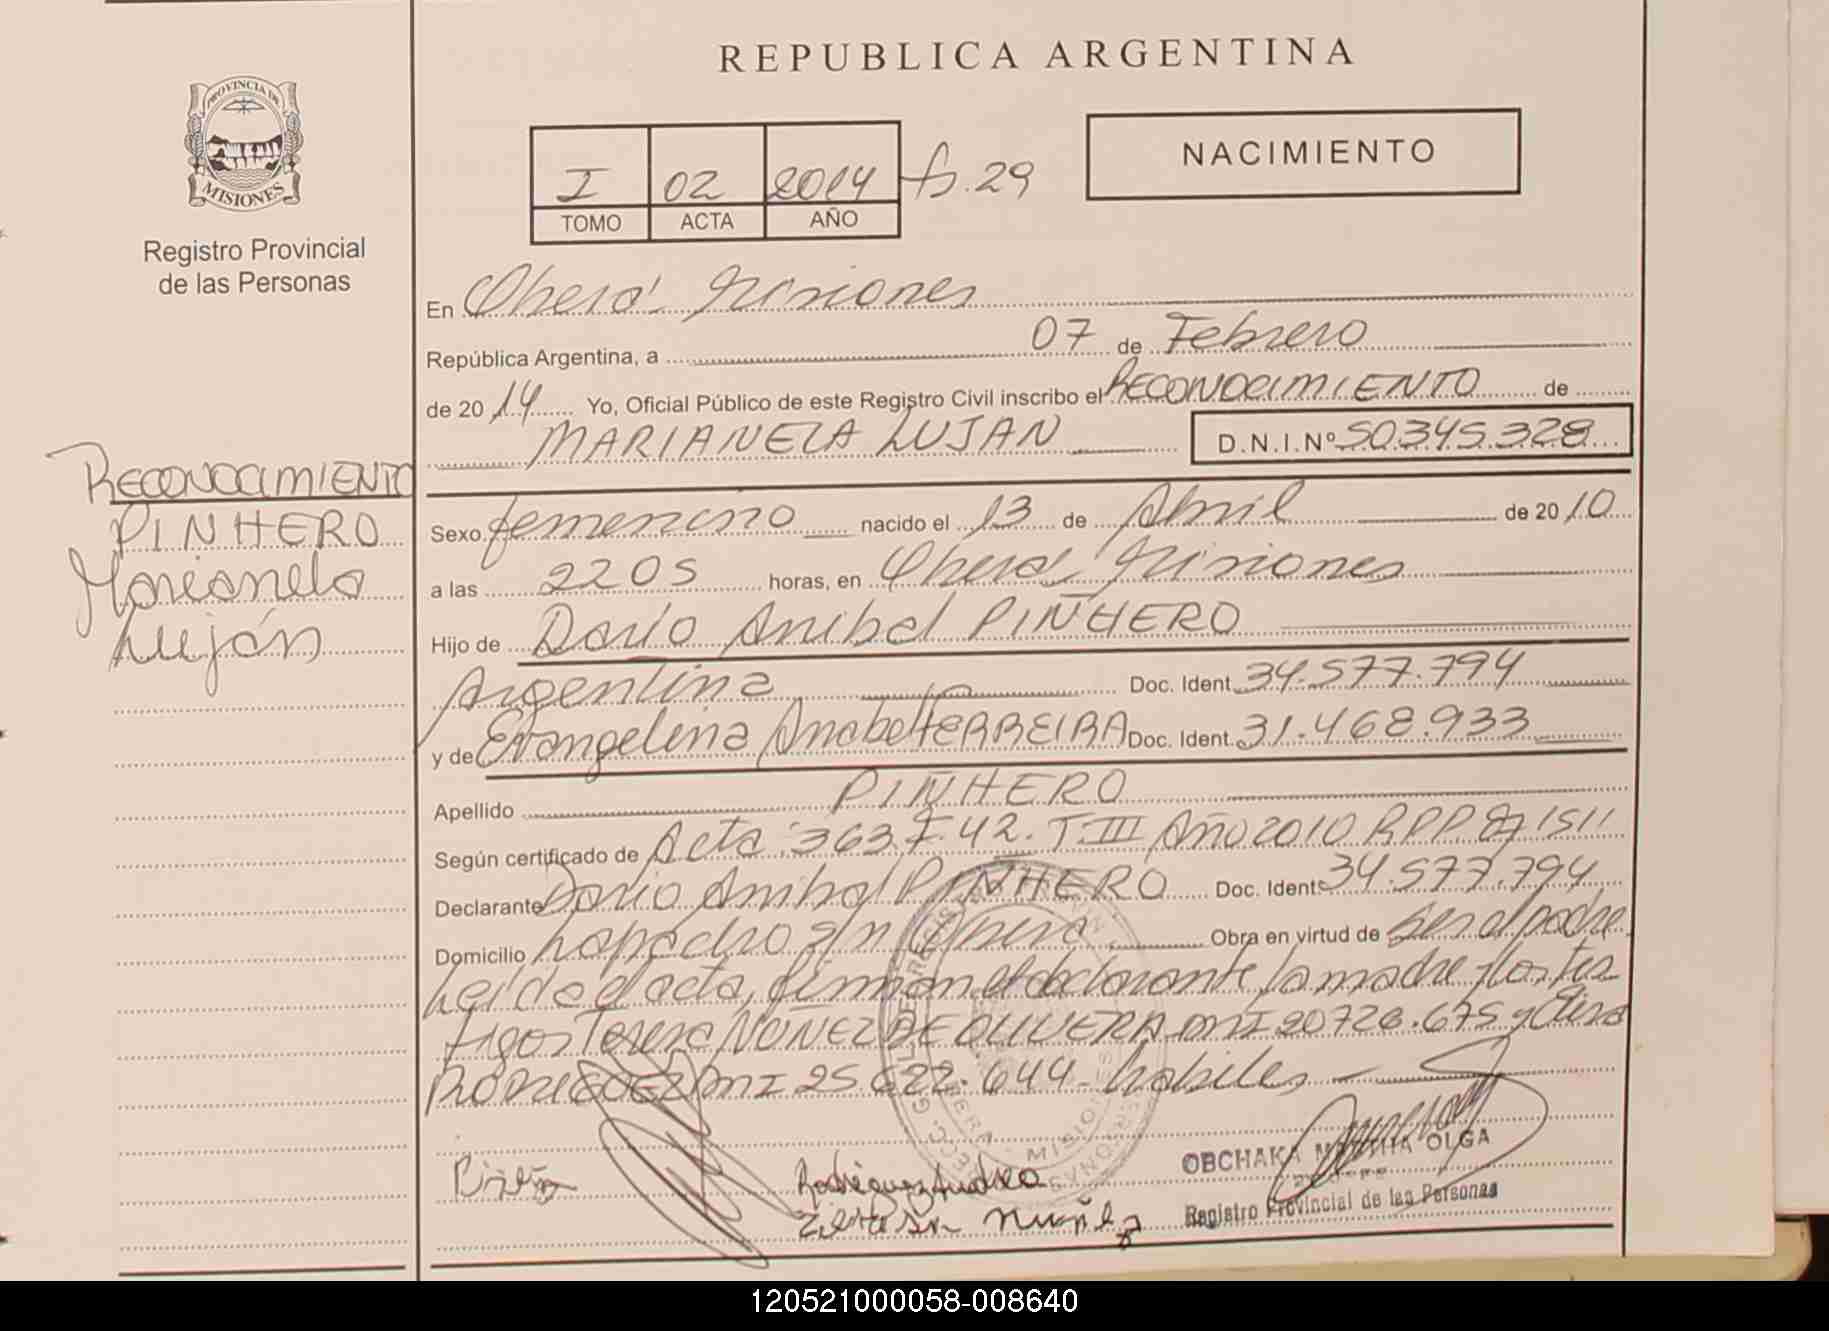 REPUBLICA ARGENTINA
PROVINCIA DE
MISIONES
Registro Provincial
de las Personas
NACIMIENTO
I 02 2014 fs.29
TOMO ACTA AÑO
En Oberá Misiones
República Argentina, a 07 de Febrero
de 2014 Yo, Oficial Público de este Registro Civil inscribo el RECONOCIMIENTO de
MARIANELA LUJAN D.N.I.Nº 50.345.328
RECONOCIMIENTO
PINHERO
Marianela
Luján
Sexo femenino nacido el 13 de Abril de 2010
a las 2205 horas, en Oberá Misiones
Hijo de Darío Anibal PIÑHERO
Argentina Doc. Ident. 34.577.794
y de Evangelina Anabel FERREIRA Doc. Ident. 31.468.933
Apellido PIÑHERO
Según certificado de Acta 363 F.42. T.III Año 2010 RPP 1511
Declarante Dario Anibal PIÑHERO Doc. Ident. 34.577.794
Domicilio s/n Oberá Obra en virtud de ser el padre
Leída el acta, firman el declarante, la madre y los tes
tigos Teresa NUÑEZ DE OLIVERA DNI 20.728.675 y
RODRIGUEZ DNI 25.622.644 - habiles
Rodriguez Andrea
Nuñez
OBCHAKA MARTHA OLGA
Registro Provincial de las Personas
120521000058-008640